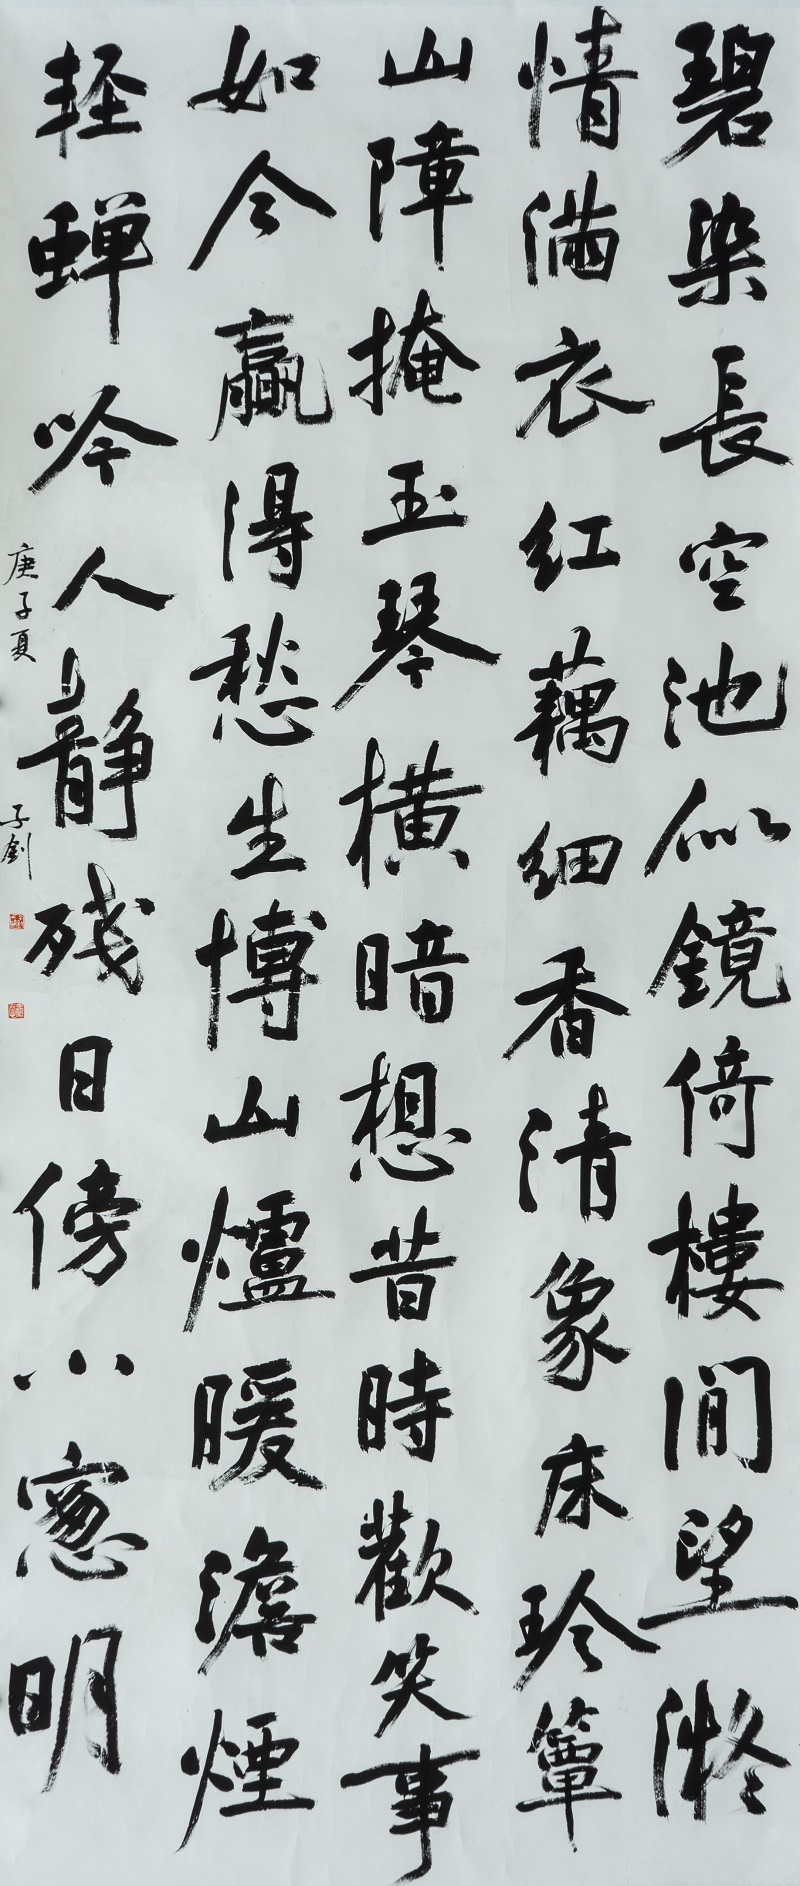 碧染長空池似鏡倚樓閒望凝
情滿衣紅藕細香清象床珍簟
山障掩玉琴橫暗想昔時歡笑事
如今贏得愁生博山爐暖澹煙
輕蟬吟人靜殘日傍小窻明
庚子夏
子劍